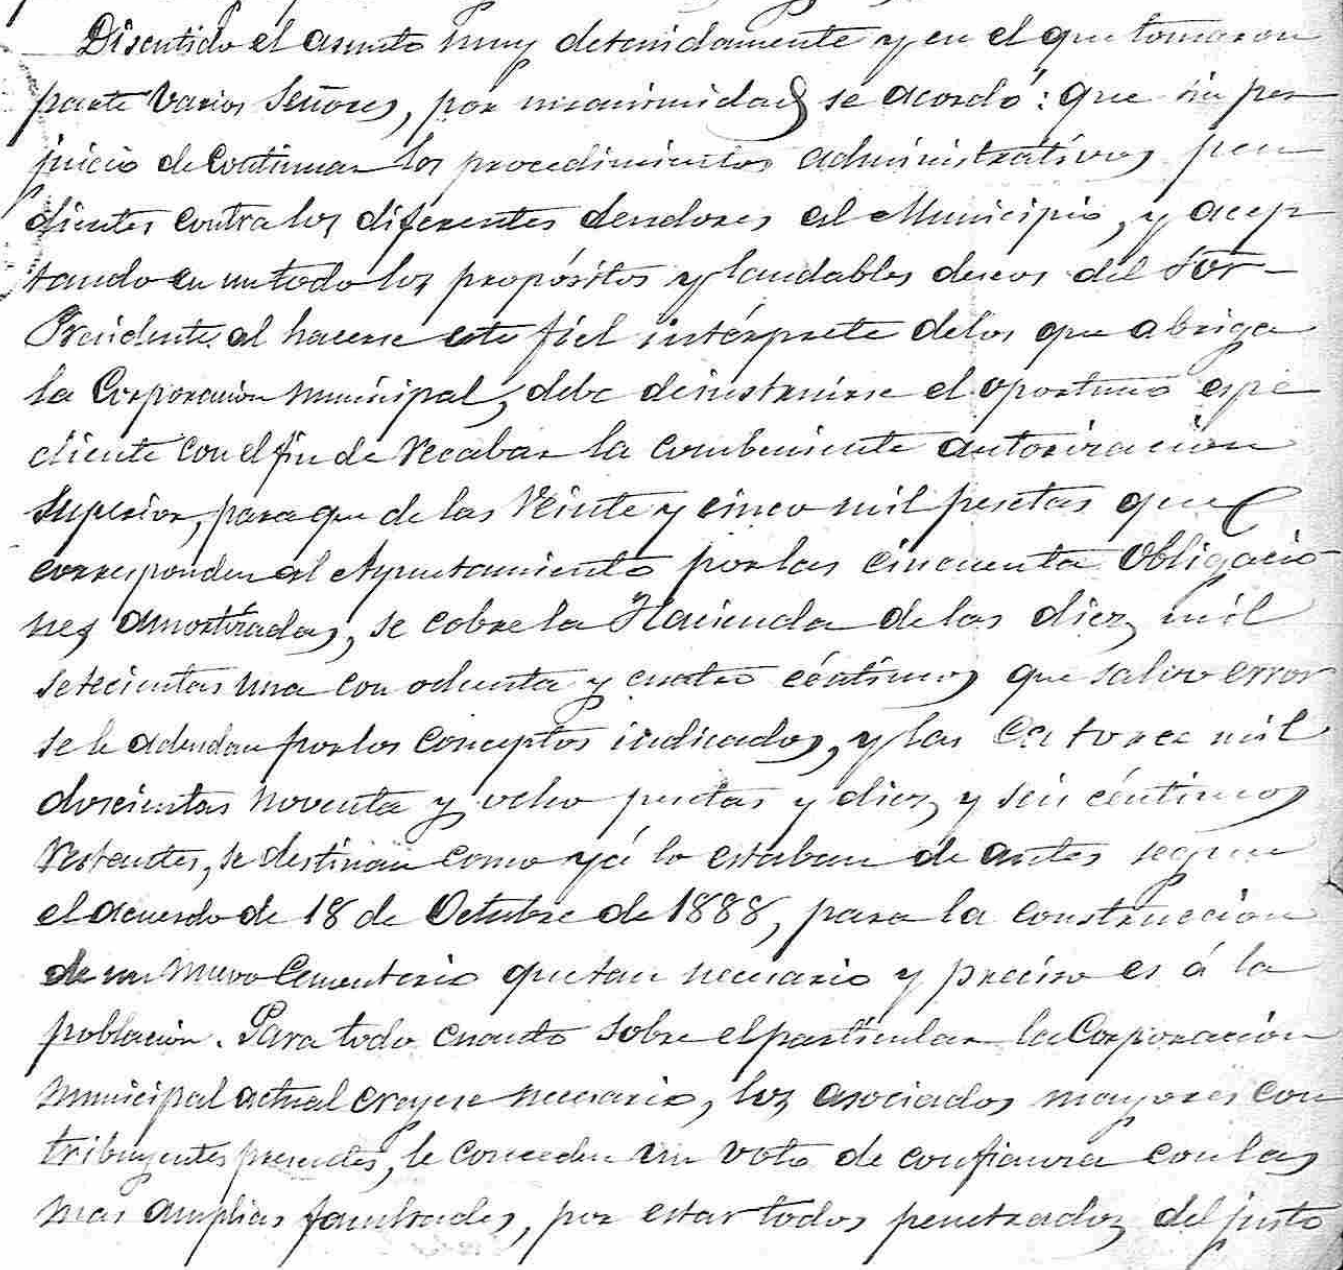 Discutido el asunto muy detenidamente y en el que tomaron
parte varios Señores, por unanimidad se acordó: que sin per
juicio de continuar los procedimientos administrativos pen
dientes contra los diferentes deudores al Municipio, y acep
tando en un todo los propósitos y laudables deseos del Sor.
Presidente al hacerse este fiel intérprete de los que abriga
la Corporación municipal, debe de instruirse el oportuno espe
diente con el fin de recabar la combeniente autorización
Superior, para que de las Veinte y cinco mil pesetas que
corresponden al Ayuntamiento por las cincuenta Obligacio
nes amortizadas, se cobre la Hacienda de las diez mil
setecientas una con ochenta y cuatro céntimos que salvo error
se le adeudan por los conceptos indicados, y las Catorce mil
doscientas noventa y ocho pesetas y diez y seis céntimos
restantes, se destinan como yá lo estaban de antes segun
el acuerdo de 18 de Octubre de 1888, para la construccion
de un nuevo Cementerio que tan necesario y preciso es á la
población. Para todo cuanto sobre el particular la Corporación
municipal actual creyese necesario, los asociados mayores con
tribuyentes presentes, le conceden un voto de confianza con las
mas amplias facultades, por estar todos penetrados del justo